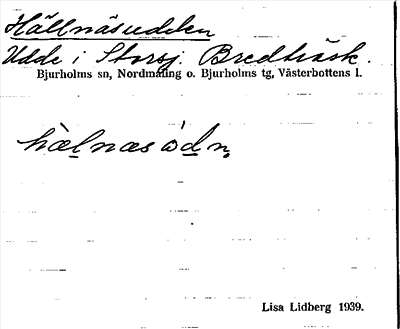 Hällnäsudden
Udde i Storsj. Bredträsk.
Bjurholms sn, Nordmaling o. Bjurholms tg, Västerbottens l.
hæ̀l̲næsὼd̲n̥
Lisa Lidberg 1939.